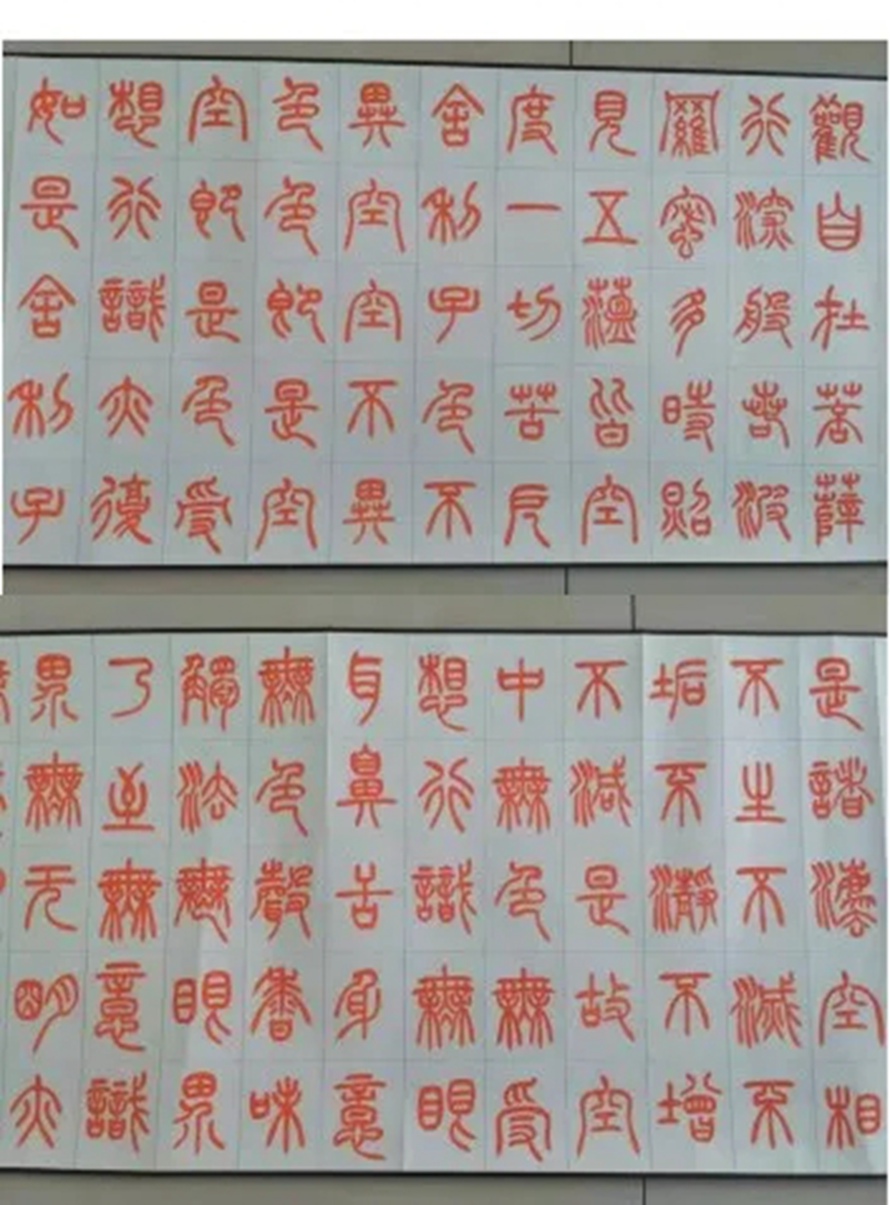 觀自在菩薩
行深般若波
羅密多時照
見五蘊皆空
度一切苦厄
舍利子色不
異空空不異
色色即是空
空即是色受
想行識亦復
如是舍利子
是諸灋空相
不生不滅不
垢不瀞不增
不減是故空
中無色無受
想行識無眼
耳鼻舌身意
無色聲香味
觸法無眼界
乃至無意識
界無无明亦